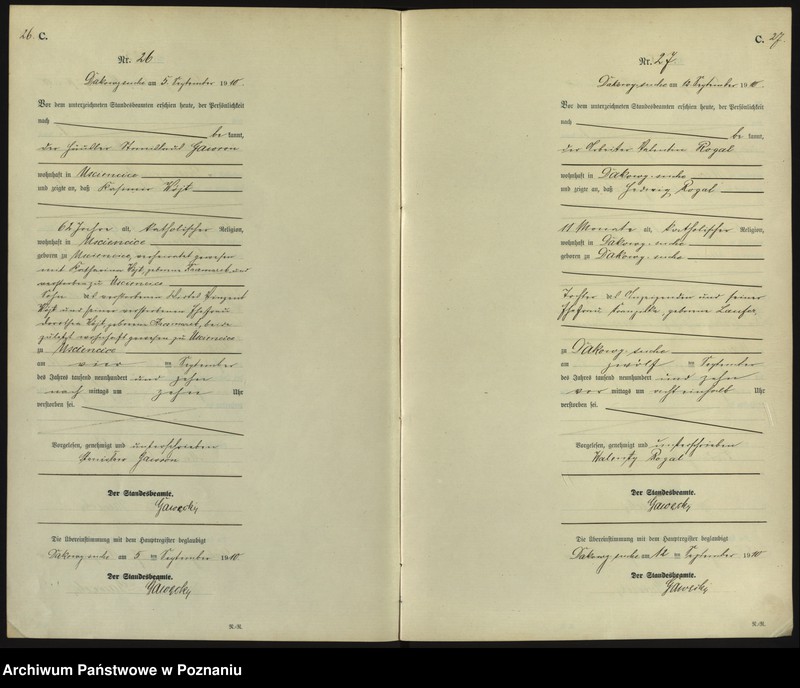 26 C.
Nr. 26
Dakowy suche am 5. September 1910.
Vor dem unterzeichneten Standesbeamten erschien heute, der Persönlichkeit
nach
be kannt,
der Häusler Stanislaus Gawron
wohnhaft in Usciencice
und zeigte an, daß Kasimir Wojt
62 Jahre alt, katholischer Religion,
wohnhaft in Uscienice
geboren zu Uscienice, verheiratet gewesen
mit Katharina Wojt, geborene
verstorben zu Uscienice
Sohn des verstorbenen Vinzent
Wojt und seiner verstorbenen Ehefrau
Dorothea Wojt, geborenen beide
zuletzt wohnhaft gewesen zu Uscienice
zu Uscienice
am vier ten September
des Jahres tausend neunhundert und zehn
nach mittags um zehn Uhr
verstorben sei.
Vorgelesen, genehmigt und unterschrieben
Gawron
Der Standesbeamte.
Gawecky
Die Übereinstimmung mit dem Hauptregister beglaubigt
Dakowy suche am 5 ten September 1910
Der Standesbeamte.
Gawecky
R.-R.
C. 27.
Nr. 27
Dakowy suche am 12. September 1910.
Vor dem unterzeichneten Standesbeamten erschien heute, der Persönlichkeit
nach
be kannt,
der Arbeiter Valentin Rogal
wohnhaft in Dakowy suche
und zeigte an, daß Hedwig Rogal
11 Monate alt, katholischer Religion,
wohnhaft in Dakowy suche
geboren zu Dakowy suche
Tochter des Anzeigenden und seiner
Ehefrau geborene
zu Dakowy suche
am zwölf ten September
des Jahres tausend neunhundert und zehn
vor mittags um acht einhalb Uhr
verstorben sei.
Vorgelesen, genehmigt und unterschrieben
Walenty Rogal
Der Standesbeamte.
Gawecky
Die Übereinstimmung mit dem Hauptregister beglaubigt
Dakowy suche am 12 ten September 1910
Der Standesbeamte.
Gawecky
R.-R.
Archiwum Państwowe w Poznaniu